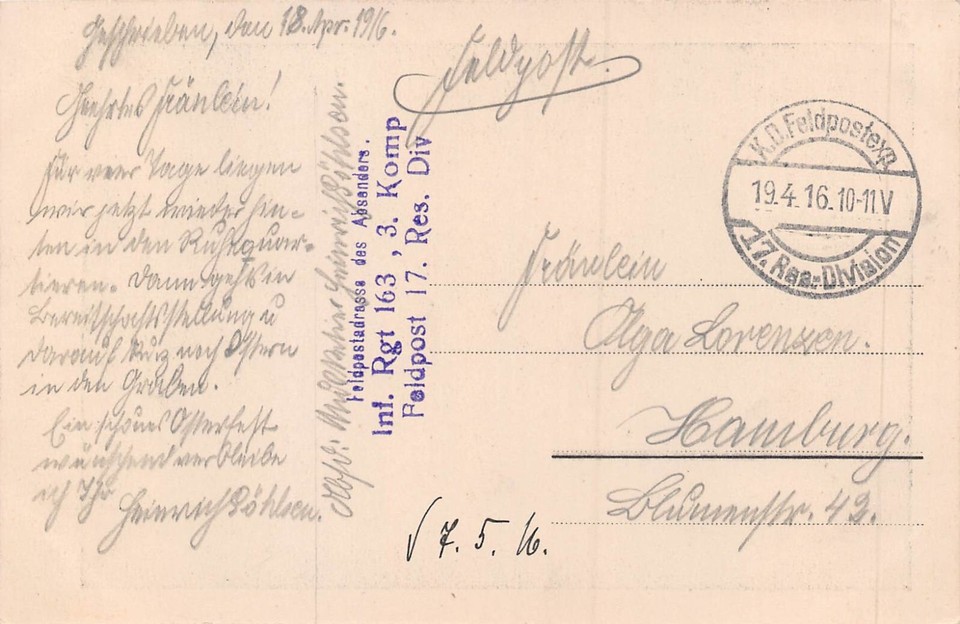 Geschrieben, den 18. Apr. 1916.
Geehrtes Fräulein!
Für vier Tage liegen
wir jetzt wieder hin-
ten in den Ruhequar-
tieren. Dann gehts in
Bereitschaftsstellung u
darauf kurz nach Ostern
in den Graben.
Ein schönes Osterfest
wünschend verbleibe
ich Ihr
Heinrich Böhlsen.
Absd: Heinrich Böhlsen.
Feldpostadresse des Absenders.
Inf. Rgt 163, 3. Komp
Feldpost 17. Res. Div
Feldpost.
K.D. Feldpostexp.
19.4.16.10-11V
17. Res.-Division
Fräulein
Olga Lorenzen.
Hamburg.
Blumenstr. 43.
7. 5. 16.